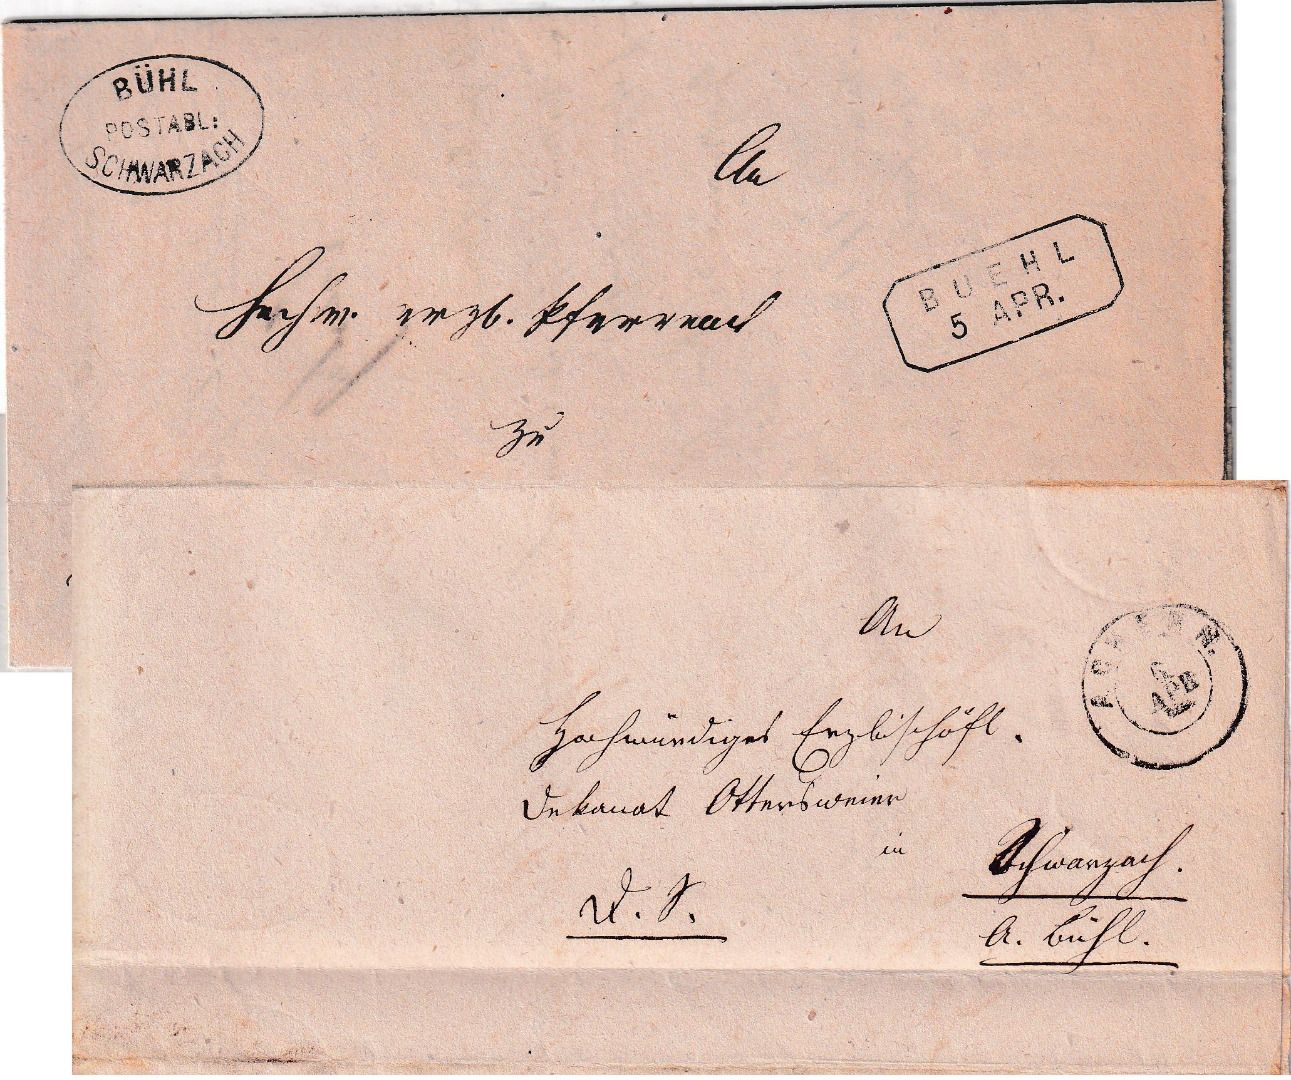 BÜHL
POSTABL:
SCHWARZACH
An
BUEHL
5 APR.
Hochw. erzb. Pfarramt
zu
An
ACHERN.
APR
Hochwürdiges Erzbischöfl.
Dekanat Ottersweier
in
Schwarzach.
D. S.
A. Bühl.